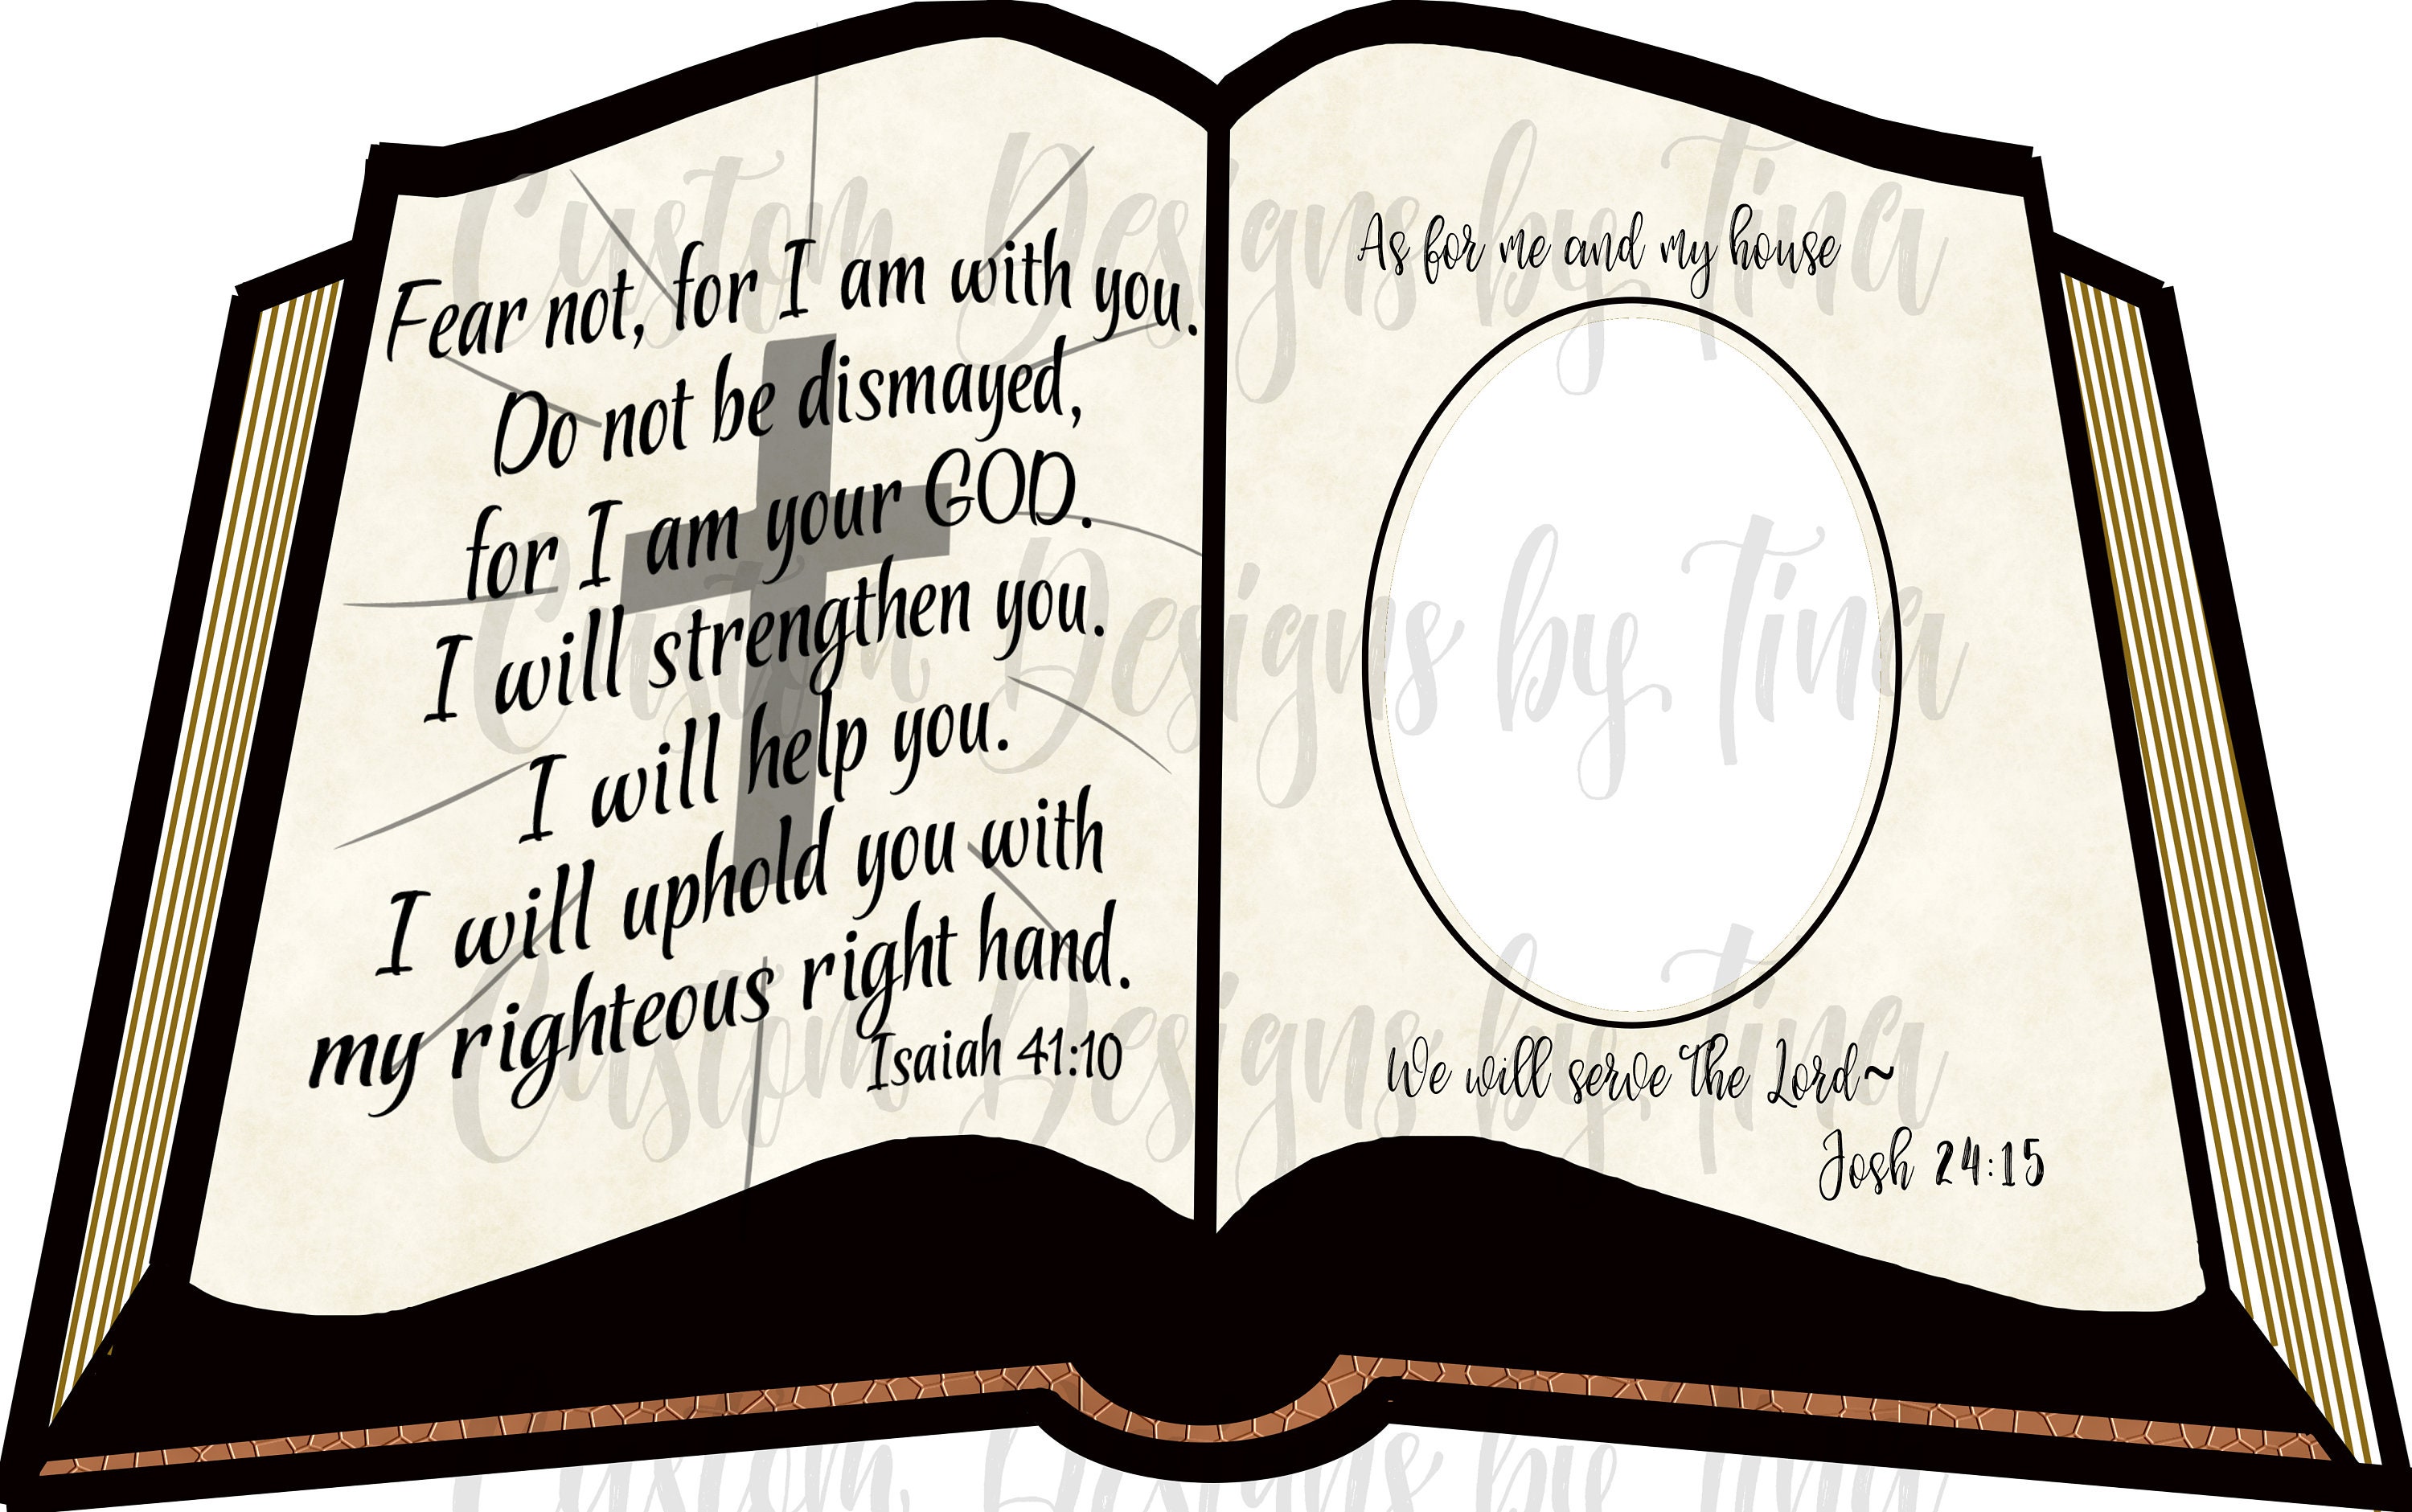 Fear not, for I am with you.
Do not be dismayed,
for I am your GOD.
I will strengthen you.
I will help you.
I will uphold you with
my righteous right hand.
Isaiah 41:10
As for me and my house
We will serve The Lord~
Josh 24:15
Custom Designs by Tina
Custom Designs by Tina
Custom Designs by Tina
Custom Designs by Tina